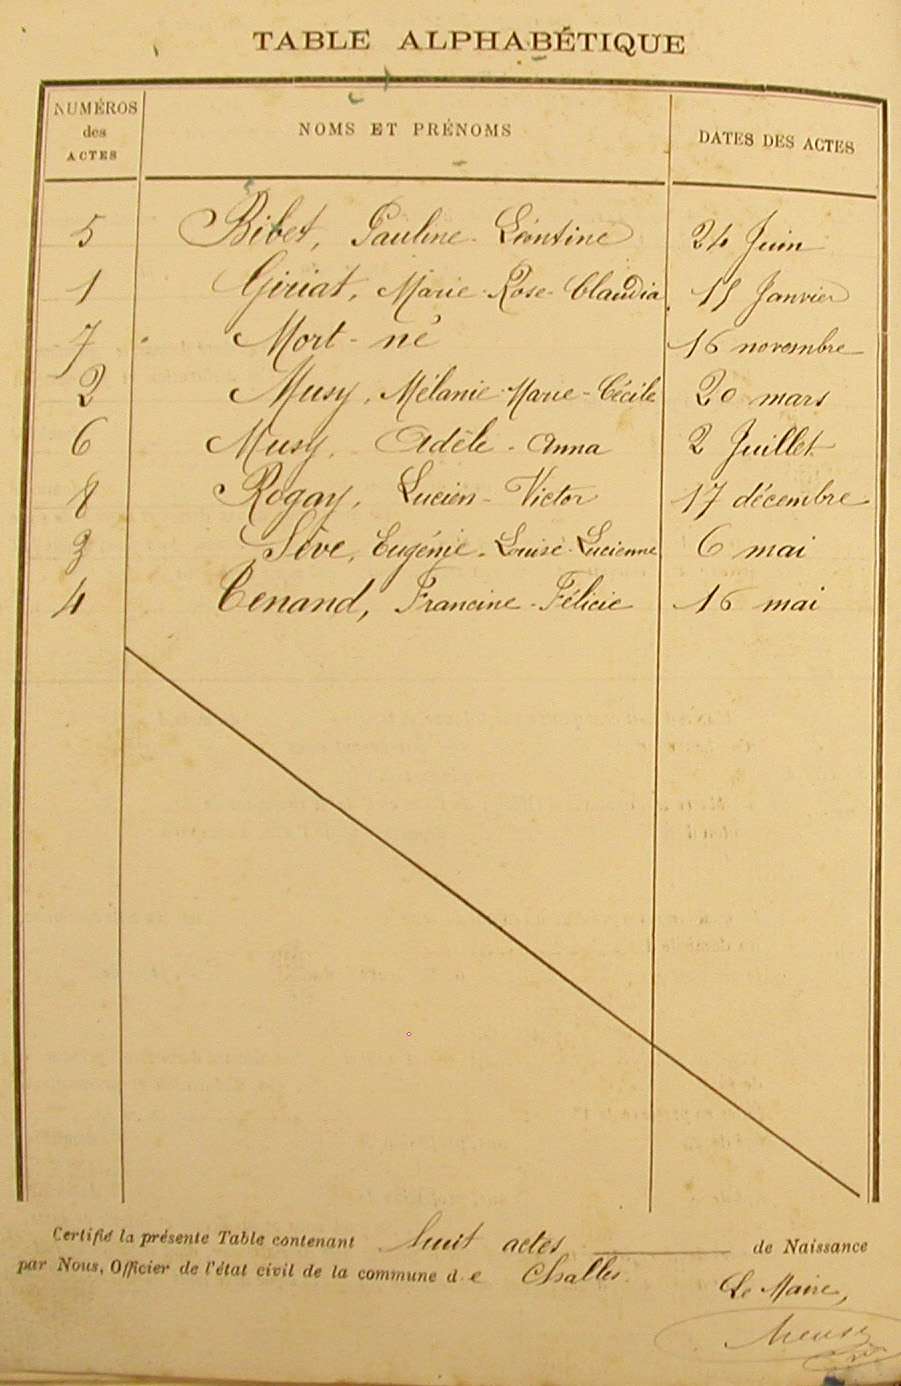 TABLE ALPHABÉTIQUE
NUMÉROS des ACTES NOMS ET PRÉNOMS DATES DES ACTES
5 Bibet, Pauline - Léontine 24 Juin
1 Giriat, Marie - Rose - Claudia 15 Janvier
7 Mort - né 16 novembre
2 Musy, Mélanie - Marie - Cécile 20 mars
6 Musy, Adèle - Anna 2 Juillet
8 Rogay, Lucien - Victor 17 décembre
3 Sève, Eugénie - Louise - Lucienne 6 mai
4 Tenand, Francine - Félicie 16 mai
Certifié la présente Table contenant huit actes de Naissance
par Nous, Officier de l'état civil de la commune de Challes.
Le Maire,